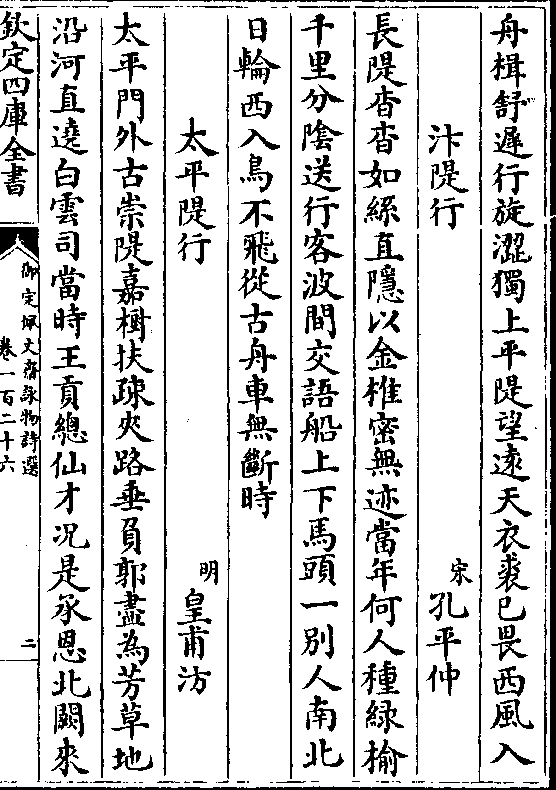 舟楫舒遲行旋澀獨上平隄望遠天衣裘已畏西風入
汴隄行　宋孔平仲
長隄杳杳如絲直隱以金椎密無迹當年何人種綠榆
千里分陰送行客波間交語船上下馬頭一別人南北
日輪西入鳥不飛從古舟車無斷時
太平隄行　明皇甫汸
太平門外古崇隄嘉樹扶疎夾路垂負郭盡為芳草地
沿河直遶白雲司當時王貢總仙才况是承恩北闕來
欽定四庫全書
御定佩文齋詠物詩選
卷一百二十六
二